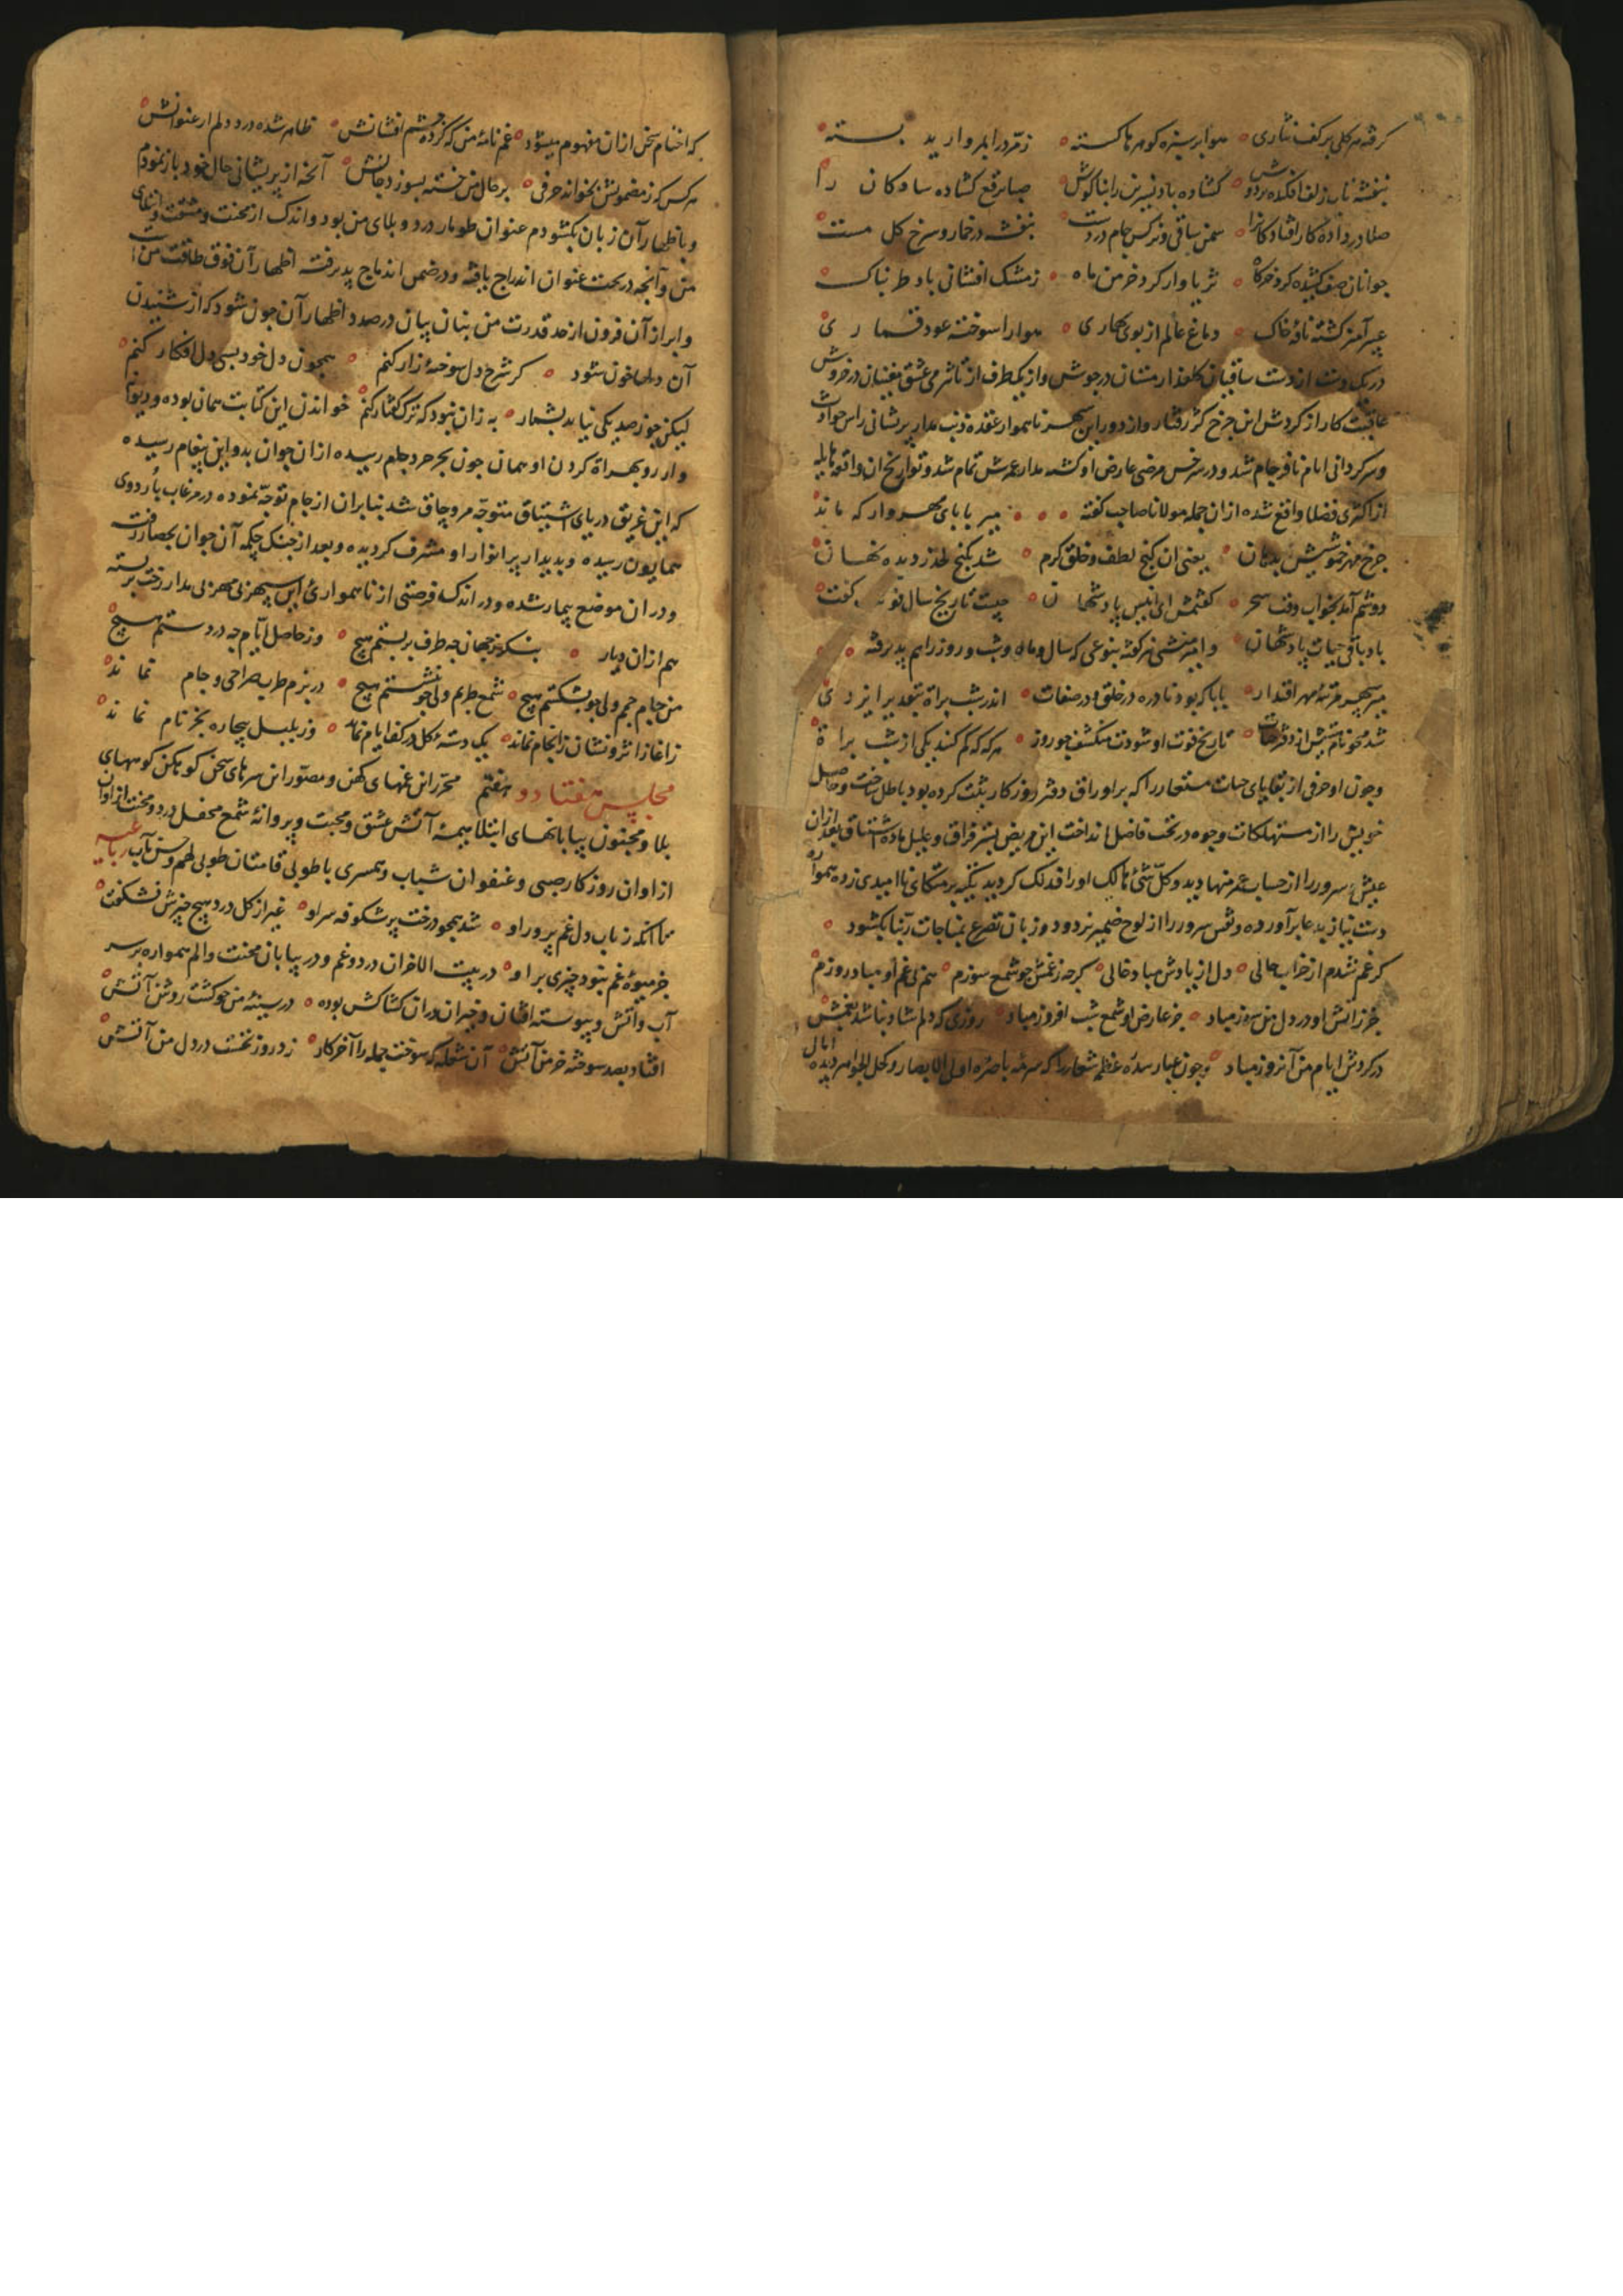 گرفته هر گلی بر کف نثاری هوا بر سبزه گوهرها گسسته زمرد را بمروارید بسته
بنفشه تاب زلف افکنده بر دوش گشاده باد نسرین را بناگوش صبا برقع گشاده سادگان را
صلا در داده کار افتادگان را سمن ساقی و نرگس جام در دست بنفشه در خمار و سرخ گل مست
جوانان صف کشیده گرد خرگاه ثریاوار گرد خرمن ماه ز مشک افشانی باد طربناک
عبیر آمیز گشته نافه خاک دماغ عالم از بوی بهاری هوا را سوخته عود قماری
در یک دست از دست ساقیان گلعذار مستان در جوش و از یکطرف از تاثیر می عشق مغنیان در خروش
عاقبت کار از گردش این چرخ کژ رفتار و از دور این سپهر ناهموار عقده ذنب مدار پریشانی راس حوادث
و سرگردانی ایام نافرجام شد و در سرخس مرضی عارض او گشته مدار عمرش تمام شد و تواریخ آن واقعه هایله
از اکثری فضلا واقع شده از ان جمله مولانا صاحب گفته میر بابای مهروار که ماند
چرخ مهر خموشیش بدهان یعنی ان گنج لطف و خلق و کرم شد بکنج لحد ز دیده نهان
دوشم آمد بخواب وقت سحر گفتمش ای انیس پادشهان چیست تاریخ سال فوتت گفت
باد باقی حیات پادشهان و امیر منشی نیز گفته بنوعی که سال و ماه و شب و روز راهم پذیرفته
میر سپهر مرتبه مهر اقتدار بابا که بود نادره در خلق و در صفات اندر شب براة بتقدیر ایزدی
شد محو نامیش از دفتر حیات تاریخ فوت او شودت منکشف چو روز هرکه که کم کنند یکی از شب براة
و چون او حرفی از بقایای حیات مستعار را که بر اوراق دفتر روزگار ثبت کرده بود باطل ساخت و حاصل
خویش را از مستهلکات وجوه در تحت فاضل انداخت این مریض بستر فراق و علیل ماده اشتیاق بعد از ان
عیش و سرور را از حساب عمر منها دید و کل شئ هالک او را فذلک گردید تکیه بر متکای ناامیدی زده همواره
دست نیاز بدعا برآورده و نقش سرور را از لوح ضمیر بزدود و زبان تضرع بمناجات ربنا بکشود
گر غم نشدم از خراب حالی دل از یادش مباد خالی گرچه ز غمش چو شمع سوزم هم بی غم او مباد روزم
جز آتش او در دل من سوز مباد جز عارض او شمع شب افروز مباد روزی که دلم شاد نباشد بغمش
در گردش ایام من آنروز مباد و چون غبار سده عظیم شعار را که سرمه باصره اولی الابصار و کحل الجواهر دیده امالی
که اختام سخن از ان مفهوم میشود غم نامه من که کرده چشم افشانش ظاهر شده درد دلم از عنوانش
هر کس که ز مضمونش بخواند حرفی بر حال من خسته بسوزد جانش آنچه از پریشانی حال خود باز نمودم
و باظهار آن زبان بکشودم عنوان طومار درد و بلای من بود و اندک از محنت و مشقت و ابتلای
من و آنچه در تحت عنوان اندراج یافته و در ضمن اندماج پذیرفته اظهار آن فوق طاقت من است
و ابراز آن فزون از حد قدرت من بنان بیان در صدد اظهار آن چون شود که از شنیدن
آن دلها خون شود گر شرح دل سوخته زار کنم همچون دل خود بسی دل افکار کنم
لیکن چو ز صد یکی نیاید بشمار به زان نبود که ترک گفتار کنم خواندن این کتابت همان بوده و دیوانه
وار رو بهراة کردن او همان چون بجرجرد جام رسیده از ان جوان بدو این پیغام رسیده
که این غریق دریای اشتیاق متوجه مروچاق شد بنابران از جام توجه نموده در مرغاب باردوی
همایون رسیده و بدیدار پر انوار او مشرف گردیده و بعد از جنگ چیکه آن جوان بحصار رفت
و دران موضع بیمار شده و در اندک فرصتی از ناهمواری این سپهر بی مهر بی مدار رخت بربسته
هم ازان دیار بنگر ز جهان چه طرف بر بستم هیچ وز حاصل ایام چه در دستم هیچ
من جام جمم ولی چو بشکستم هیچ شمع طربم ولی چو بنشستم هیچ در بزم طرب صراحی و جام نماند
ز آغاز اثر و نشان ز انجام نماند یک دسته گل در کف ایام نماند وز بلبل بیچاره بجز نام نماند
مجلس هفتاد و هفتم محرر این غمهای کهن و مصور این سرهای سخن کوهکن کوههای
بلا و مجنون بیابانهای ابتلا هیمه آتش عشق و محبت و پروانه شمع محفل درد و محنت از اوان
از اوان روزگار صبی و عنفوان شباب و همسری با طوبی قامتان طوبی لهم و حسن مآب رباعیه
ما آنکه ز باب دل غم پرور او شد همچو درخت پر شکوفه سر او غیر از گل درد هیچ چیزش نشکفت
جز میوه غم نبود چیزی بر او در بیت الاحزان درد و غم و در بیابان محنت و الم همواره بر سر
آب و آتش و پیوسته افتان و خیزان دران کشاکش بوده در سینه من چو گشت روشن آتش
افتاد بصد سوخته خرمن آتش آن شعله که سوخت جمله را آخر کار زد روز نخست در دل من آتش